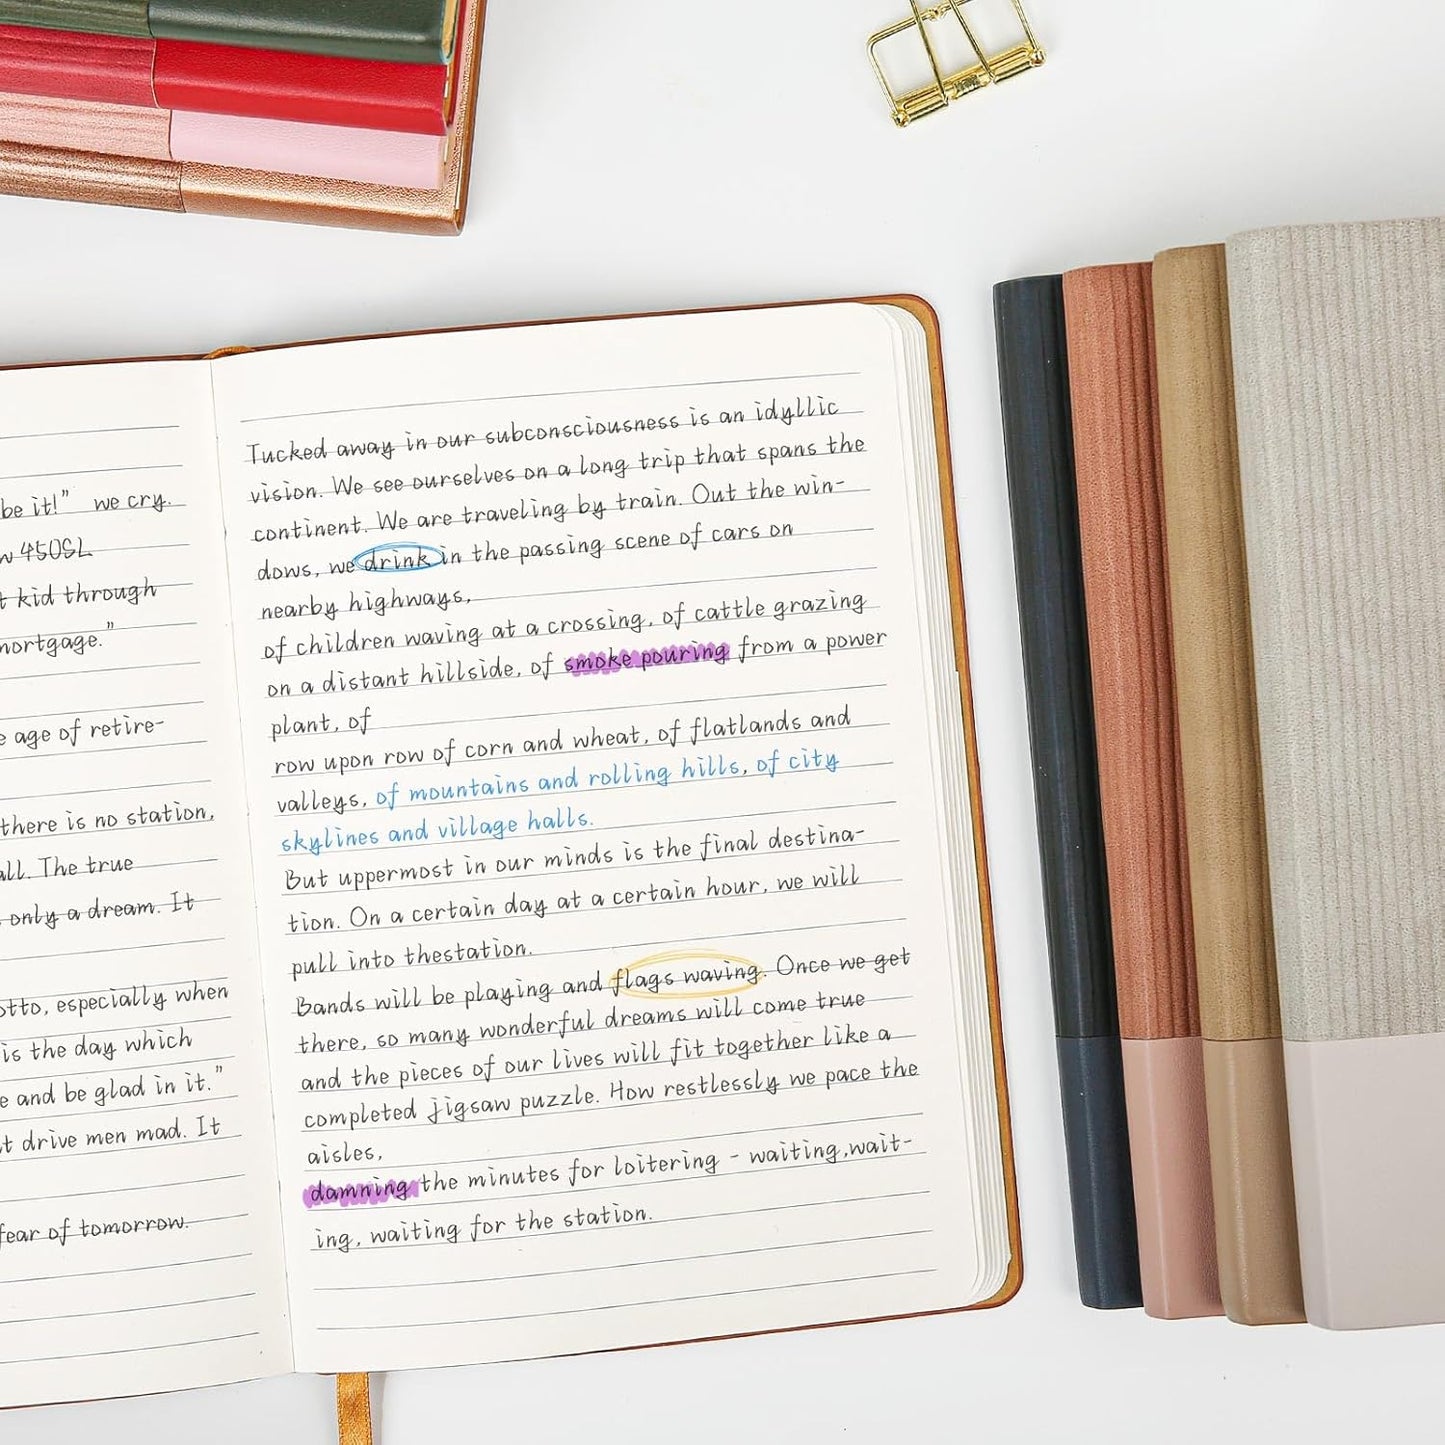 be it!" we cry.
450SL
kid through
mortgage."
age of retire-
there is no station,
all. The true
only a dream. It
especially when
is the day which
and be glad in it."
drive men mad. It
fear of tomorrow.
Tucked away in our subconsciousness is an idyllic
vision. We see ourselves on a long trip that spans the
continent. We are traveling by train. Out the win-
dows, we drink in the passing scene of cars on
nearby highways,
of children waving at a crossing, of cattle grazing
on a distant hillside, of smoke pouring from a power
plant, of
row upon row of corn and wheat, of flatlands and
valleys, of mountains and rolling hills, of city
skylines and village halls.
But uppermost in our minds is the final destina-
tion. On a certain day at a certain hour, we will
pull into thestation.
Bands will be playing and flags waving. Once we get
there, so many wonderful dreams will come true
and the pieces of our lives will fit together like a
completed jigsaw puzzle. How restlessly we pace the
aisles,
damning the minutes for loitering - waiting,wait-
ing, waiting for the station.